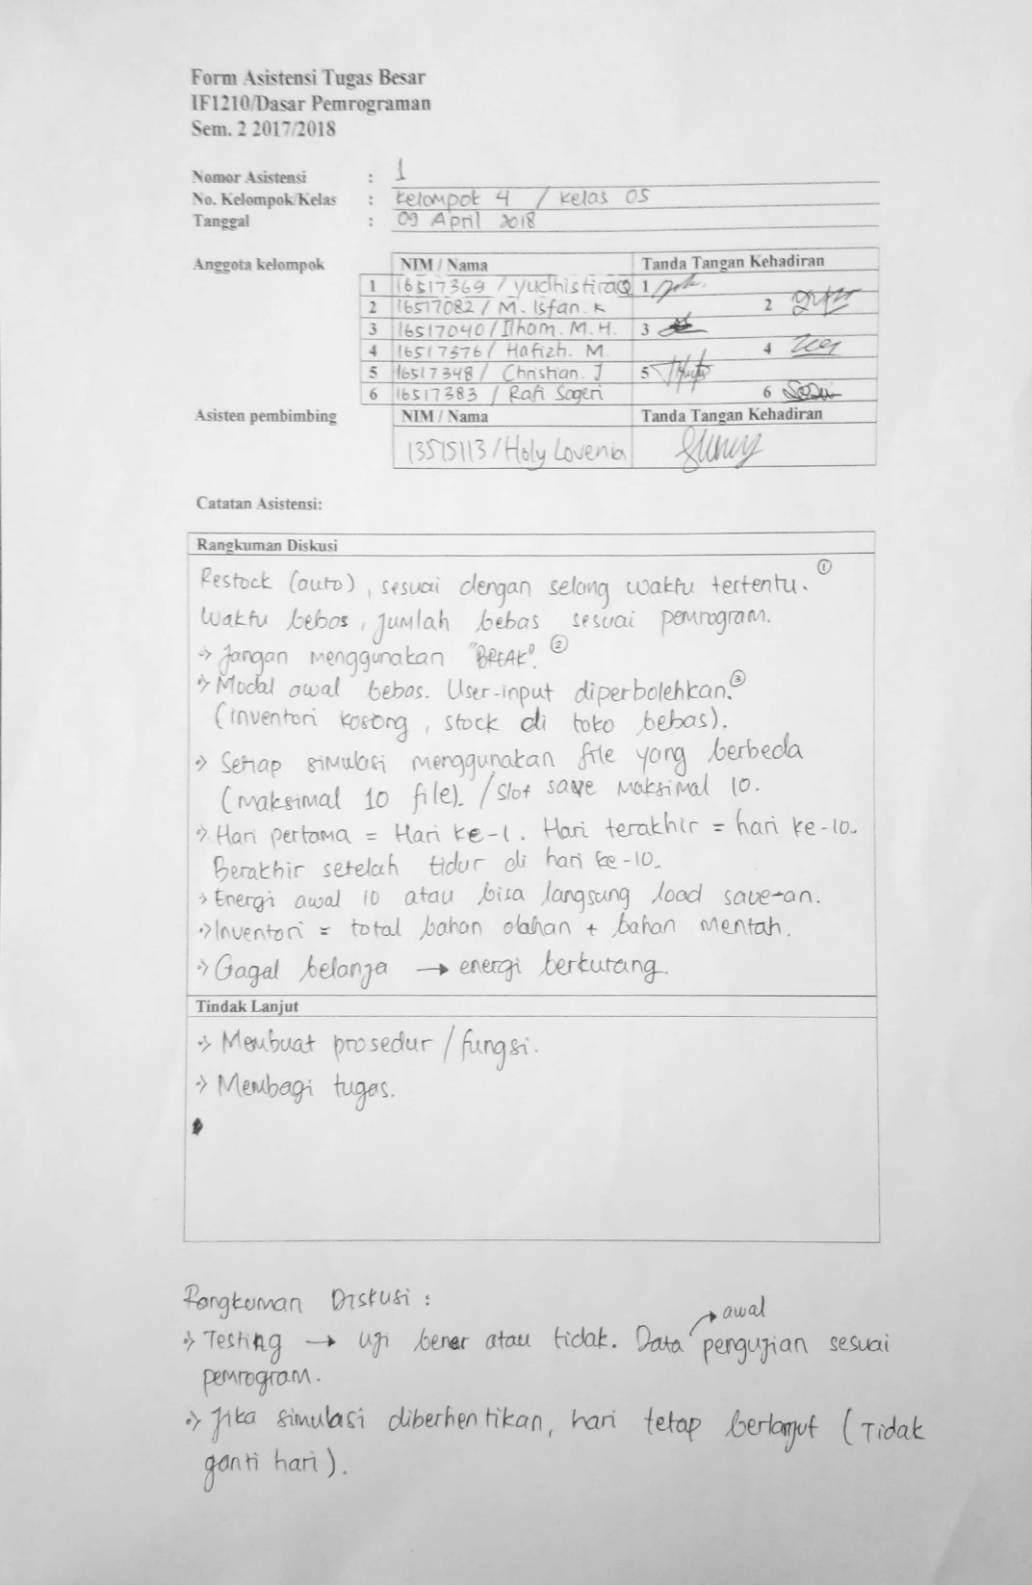 Form Asistensi Tugas Besar
IF1210/Dasar Pemrograman
Sem. 2 2017/2018
Nomor Asistensi : 1
No. Kelompok/Kelas : Kelompok 4 / Kelas 05
Tanggal : 09 April 2018
Anggota kelompok NIM / Nama Tanda Tangan Kehadiran
1 16517369 / Yudhistira 1
2 16517082 / M. Isfan. K 2
3 16517040 / Ilham. M. H. 3
4 16517376 / Hafizh. M 4
5 16517348 / Christian. J 5
6 16517383 / Rafi Sageri 6
Asisten pembimbing NIM / Nama Tanda Tangan Kehadiran
13515113 / Holy Lovenia
Catatan Asistensi:
Rangkuman Diskusi
Restock (auto), sesuai dengan selang waktu tertentu. ①
Waktu bebas, jumlah bebas sesuai pemrogram.
-> Jangan menggunakan "BREAK". ②
-> Modal awal bebas. User-input diperbolehkan. ③
(inventori kosong, stock di toko bebas).
-> Setiap simulasi menggunakan file yang berbeda
(maksimal 10 file). / slot save maksimal 10.
-> Hari pertama = Hari ke-1. Hari terakhir = hari ke-10.
Berakhir setelah tidur di hari ke-10.
-> Energi awal 10 atau bisa langsung load save-an.
-> Inventori = total bahan olahan + bahan mentah.
-> Gagal belanja → energi berkurang.
Tindak Lanjut
-> Membuat prosedur / fungsi.
-> Membagi tugas.
Rangkuman Diskusi :
awal
-> Testing → uji bener atau tidak. Data pengujian sesuai
pemrogram.
-> Jika simulasi diberhentikan, hari tetap berlanjut (Tidak
ganti hari).